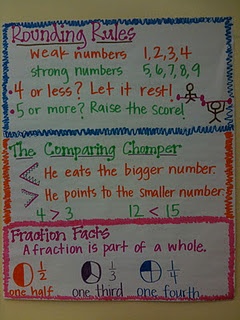 Rounding Rules
Weak numbers 1,2,3,4
strong numbers 5,6,7,8,9
• 4 or less? Let it rest!
• 5 or more? Raise the score!
The Comparing Chomper
He eats the bigger number.
He points to the smaller number.
4 > 3 12 < 15
Fraction Facts
A fraction is part of a whole.
1/2 1/3 1/4
one half one third one fourth